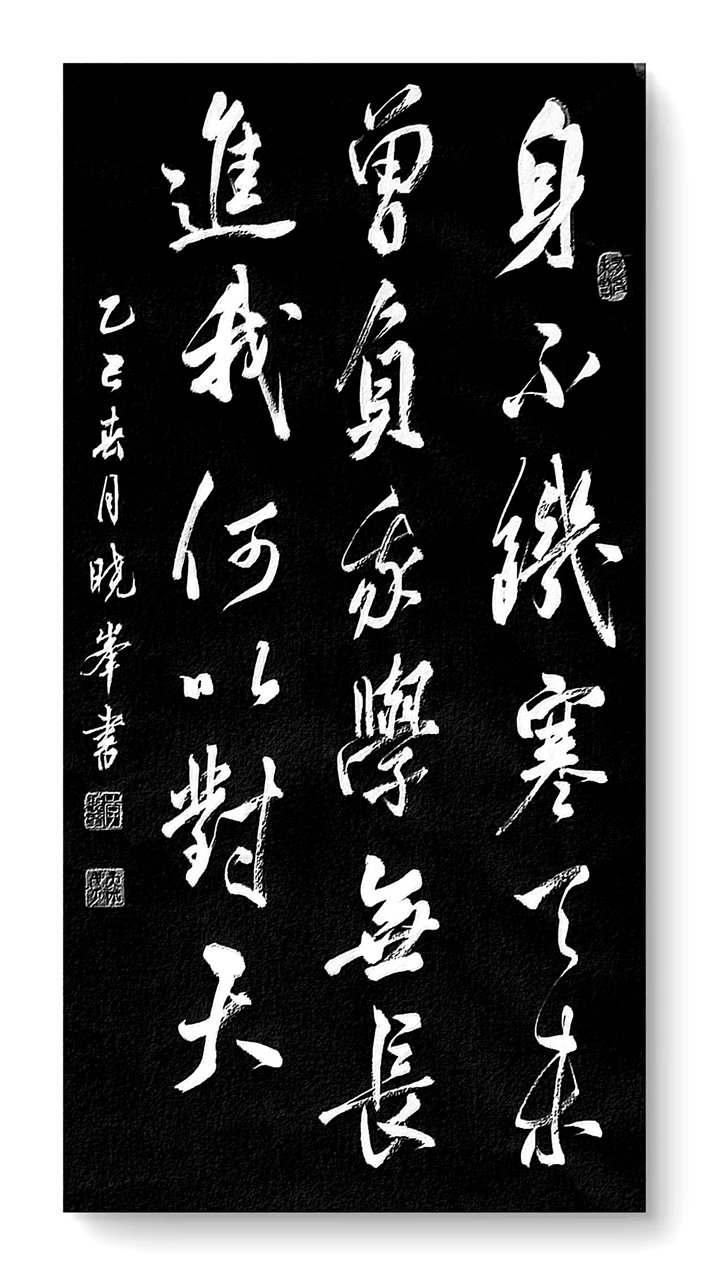 身不饑寒天未
曾負我學無長
進我何以對天
乙巳春月晓峯書